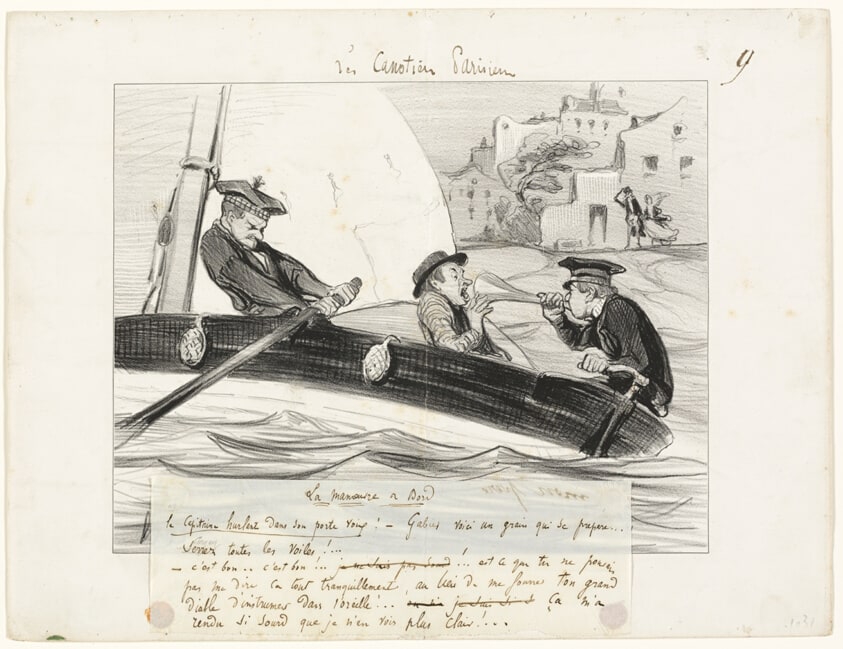 Les Canotiers Parisiens
9
La manœuvre a Bord
le Capitaine hurlant dans son porte voix! - Gabus voici un grain qui se prépare...
Serrez toutes les Voiles!...
- c'est bon.. c'est bon!... je ne suis pas sourd! ... est ce que tu ne pouvais
pas me dire Ca tout tranquillement, au lieu de me fourrer ton grand
diable d'instrument dans l'oreille!... je suis Ça m'a
rendu si sourd que je n'en vois plus clair!...